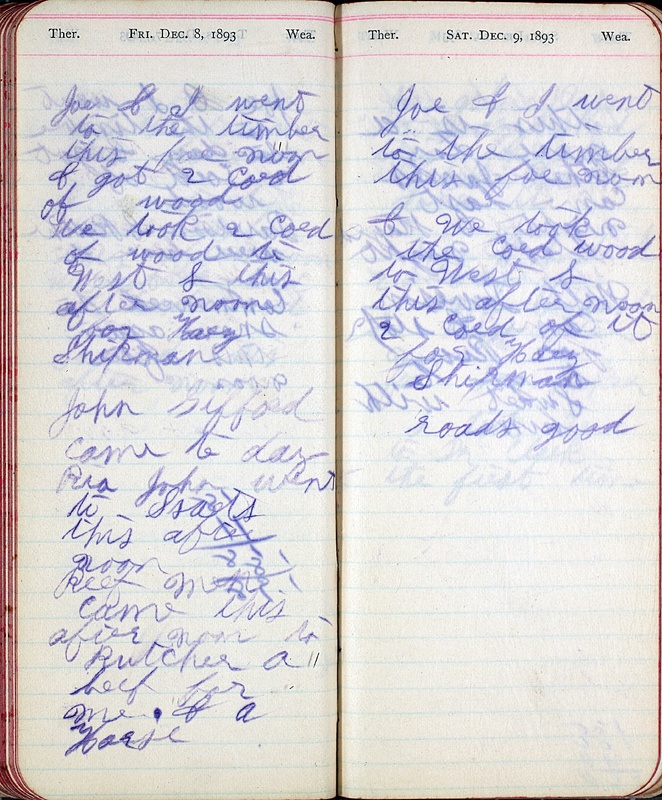 Ther. FRI. DEC. 8, 1893 Wea.
Joe & I went
to the timber
this fore noon
& got 2 Cord
of wood
We took 2 Cord
of wood to
West & this
after noone
Shipman
John Gifford
came to day
John went
to
this after
noon
Beef
Came this
after noon to
Butcher a
beef for
me. & a
Horse
Ther. SAT. DEC. 9, 1893 Wea.
Joe & I went
to the timber
this fore noon
& We took
the Cord wood
to West &
this after noon
2 Cord of it
for Harry
Shipman
roads good